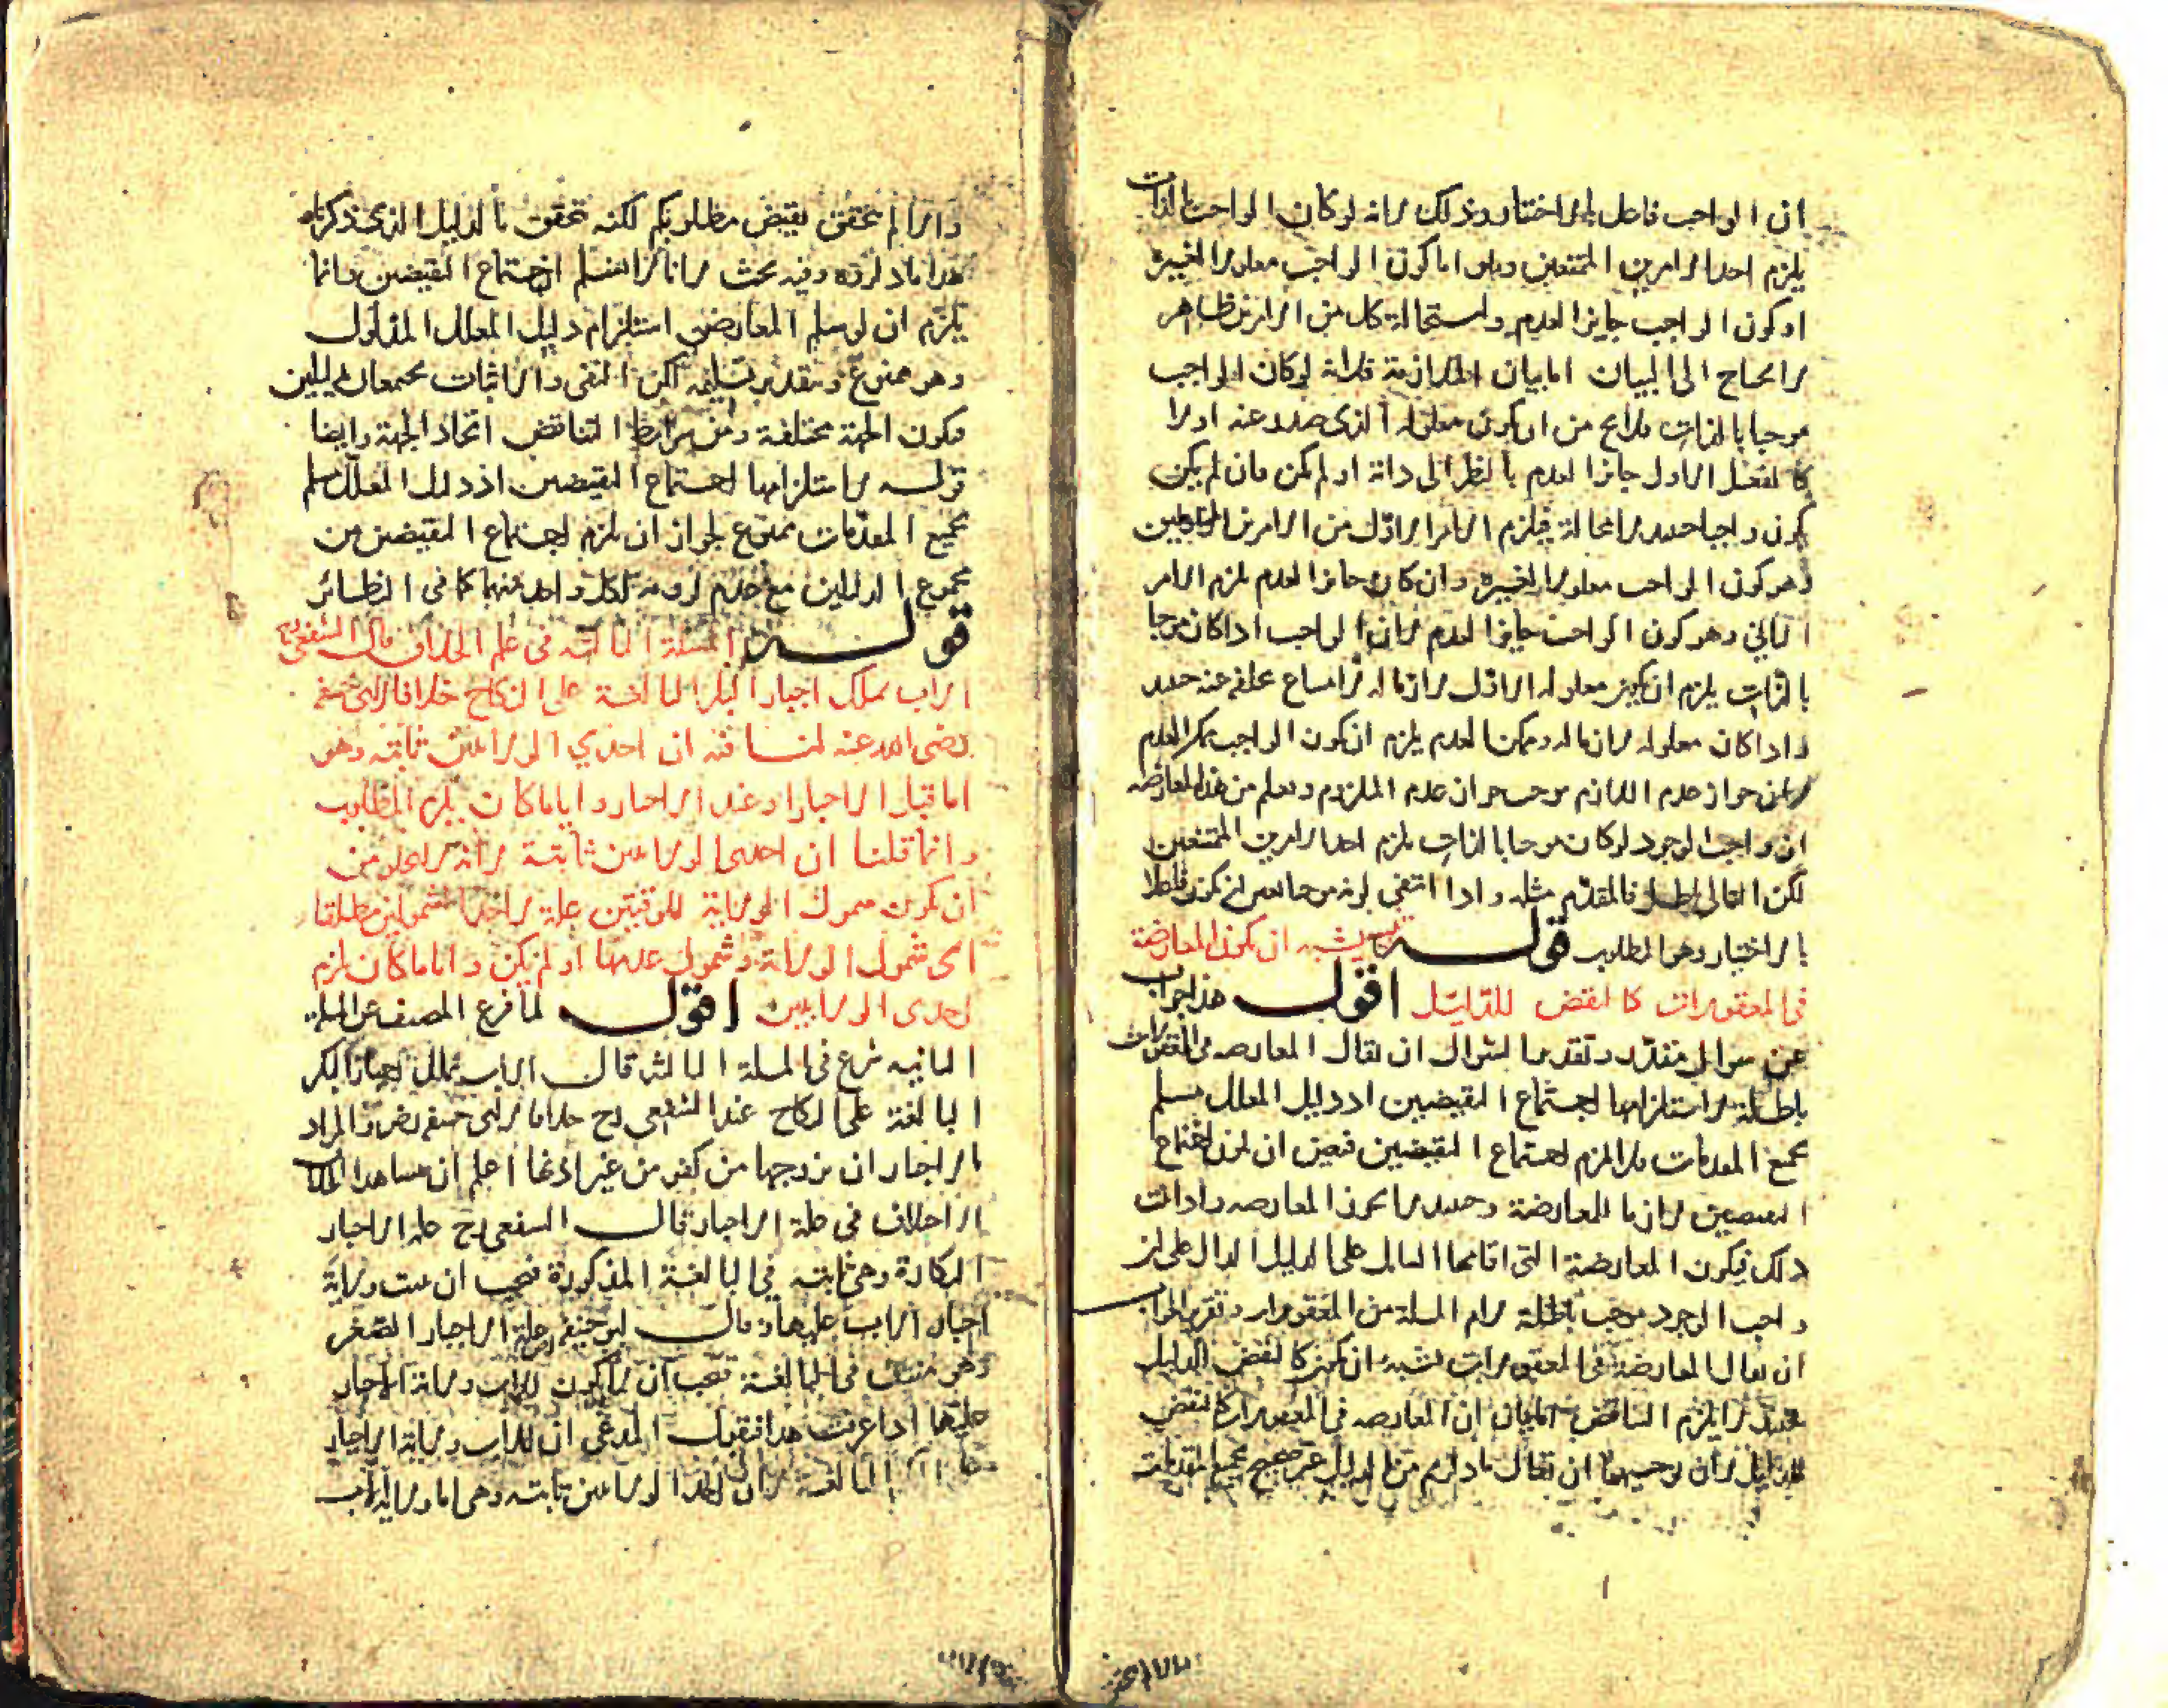 ان الواجب فاعل بالاختيار وذلك لانه لو كان الواجب بالذات
يلزم احد الامرين الممتنعين وهو اما كون الواجب معلولا لغيره
او كون الواجب جايز العدم واستحالة كل من الامرين ظاهر
لا يحتاج الى البيان اما بيان الملازمة فلانه لو كان الواجب
موجبا بالذات فلا يخ من ان يكون معلوله الذى صدر عنه اولا
كالعقل الاول جائز العدم بالنظر الى ذاته او لم يكن فان لم يكن
يكون واجبا حينئذ لا محالة فيلزم الامر الاول من الامرين
وهو كون الواجب معلولا لغيره وان كان جائز العدم يلزم الامر
الثاني وهو كون الواجب جايز العدم لان الواجب اذا كان موجبا
بالذات يلزم ان يكون معلوله الاول لازما له لامتناع تخلفه عنه حينئذ
واذا كان معلوله لازما له وممكن العدم يلزم ان يكون الواجب ممكن العدم
لان جواز عدم اللازم يوجب جواز عدم الملزوم ونعلم من هذا المعارضة
ان واجب الوجود لو كان موجبا بالذات يلزم احد الامرين الممتنعين
لكن التالى باطل فالمقدم مثله واذا انتفى كونه موجبا تعين ان يكون فاعلا
بالاختيار وهو المطلوب قوله يشبه ان يكون المعارضة
فى المعقولات كالنقض للدليل اقول هذا جواب
عن سوال مقدر وتقدير السؤال ان يقال المعارضة فى المعقولات
باطلة لاستلزامها اجتماع النقيضين اذ دليل المعلل مسلم
بجميع المقدمات فلا يلزم اجتماع النقيضين فتعين ان يكون اجتماع
النقيضين لازما للمعارضة وحينئذ لا يجوز المعارضة واذا ثبت
ذلك فيكون المعارضة التى اقامها السائل على الدليل الدال على ان
واجب الوجود موجب باطلة لان المسئلة من المعقولات وتقرير الجواب
ان يقال المعارضة فى المعقولات يشبه ان يكون كالنقض للدليل
حينئذ لا يلزم التناقض اما بيان ان المعارضة فى المعقولات كالنقض
للدليل لان توجيهها ان يقال ما ذكرتم من الدليل غير صحيح بجميع المقدمات
والا لم يتحقق نقيض مطلوبكم لكنه تحقق بالدليل الذى ذكرناه
هذا ما ذكروه وفيه بحث لانا لا نسلم اجتماع النقيضين وانما
يلزم ان لو سلم المعارض استلزام دليل المعلل المدلول
وهو ممنوع وبتقدير تسليمه لكن النفى والاثبات مجتمعان بدليلين
فيكون الجهة مختلفة ومن شرايط التناقض اتحاد الجهة وايضا
قوله لاستلزامها اجتماع النقيضين اذ دليل المعلل مسلم
بجميع المقدمات ممنوع لجواز ان يلزم اجتماع النقيضين من
مجموع الدليلين مع عدم لزومه لكل واحد منهما كما فى النظائر
قوله المسئلة الثالثة فى علم الخلاف قال الشافعى
الاب يملك اجبار البكر البالغة على النكاح خلافا لابى حنيفة
رضى الله عنه لمنافته ان احدى الولايتين ثابتة وهو
اما قبل الاجبار او عند الاجبار وايا ما كان يلزم المطلوب
وانما قلنا ان احدى الولايتين ثابتة لانه لا يخلو من
ان يكون شمول الولاية للوقتين علة لاحد الشمولين مطلقا
اى شمول الولاية وشمول عدمها او لم يكن وايا ما كان يلزم
احدى الولايتين اقول لما فرغ المصنف عن المسئلة
الثانيه شرع فى المسئلة الثالثة قال الاب يملك اجبار البكر
البالغة على النكاح عند الشافعى رح خلافا لابى حنيفة رض والمراد
بالاجبار ان يزوجها من كفو من غير اذنها اعلم ان منشا هذا
الاختلاف فى علة الاجبار قال الشافعى رح علة الاجبار
البكارة وهى ثابتة فى البالغة المذكورة فيجب ان يثبت ولاية
اجبار الاب عليها وقال ابو حنيفة رح علة الاجبار الصغر
وهو منتف فى البالغة فيجب ان لا يكون للاب ولاية الاجبار
عليها اذا عرفت هذا فنقول المدعى ان للاب ولاية الاجبار
على البالغة لان احدى الولايتين ثابتة وهى اما ولاية الاب